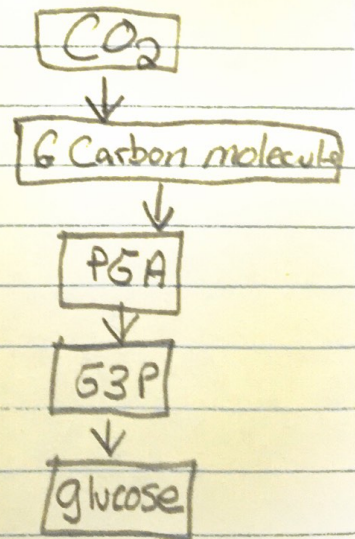 CO2
6 Carbon molecule
PGA
G3P
glucose